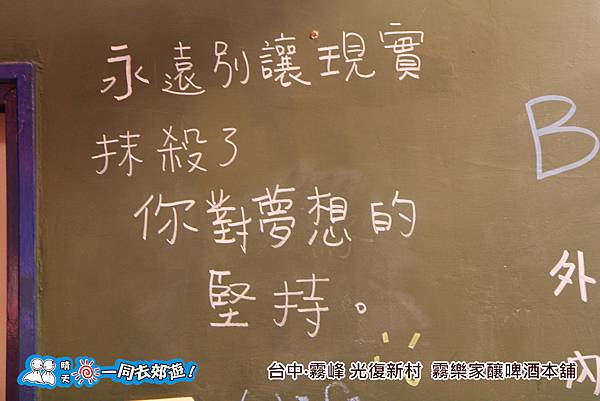 永遠別讓現實
抹殺了
你對夢想的
堅持。
B
外
內
晴天 一同去郊遊!
台中‧霧峰 光復新村 霧樂家釀啤酒本舖